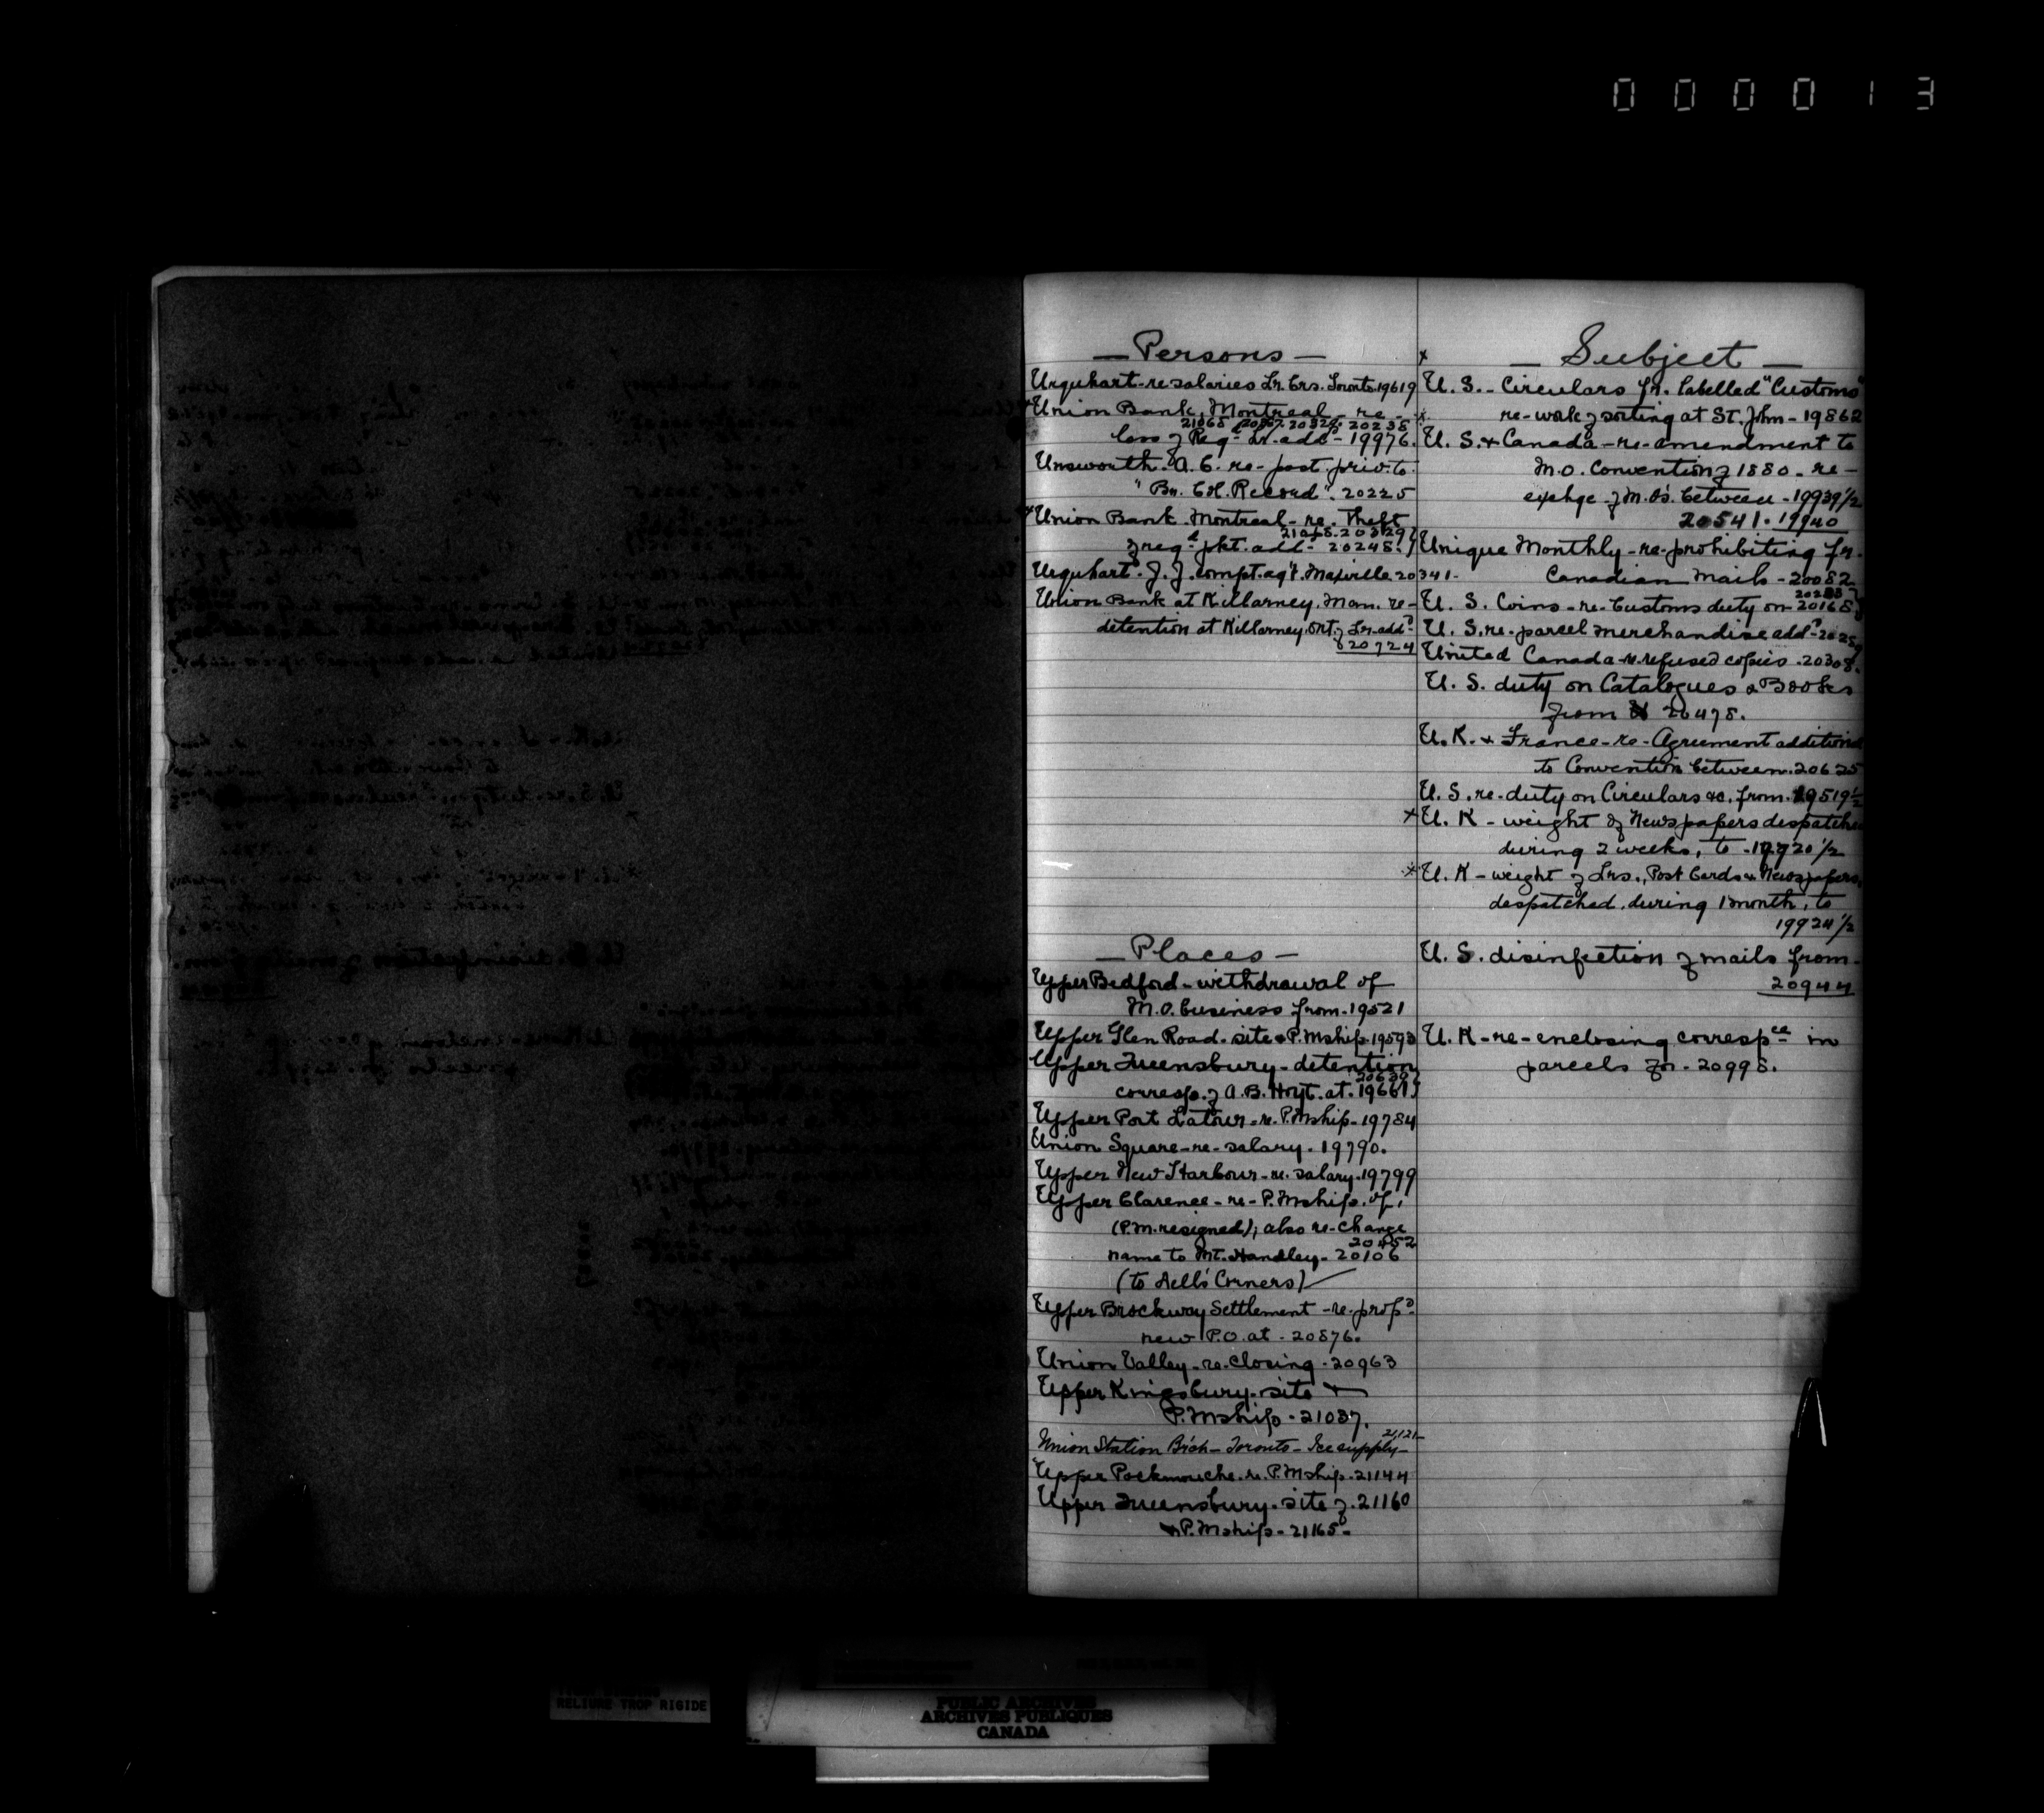 0 0 0 0 1 3
— Persons —
Urquhart - re salaries Lr. Crs. Toronto. 19619
Union Bank, Montreal - re -
20238
loss of Reg^d Lr. add^d - 19976.
Unsworth. A. C. re - post. priv. to.
" Bn. Col. Record". 20225
Union Bank. Montreal - re. Theft
of reg^d pkt. add^d - 20248.
Urquhart. J. J. compt. ag^t. Maxville 20341.
Union Bank at Killarney. Man. re -
detention at Killarney. Ont. of Lr. add^d
20724
— Places —
Upper Bedford - withdrawal of
M.O. business from. 19521
Upper Glen Road. site & P. Mship. 19593
Upper Queensbury - detention
20639
corresp. of A. B. Hoyt. at. 19661
Upper Port Latour - re. P. Mship - 19784
Union Square - re - salary. 19790.
Upper New Harbour - re. salary. 19799
Upper Clarence - re - P. Mship. of,
(P.M. resigned); also re - change
20452
name to Mt. Handley - 20106
(to Corners)
Upper Brockway Settlement - re. prop^d
new P.O. at - 20876.
Union Valley - re. closing - 20963
Upper Kingsbury. site &
P. Mship - 21037.
21121
Union Station Bch - Toronto - Ice supply -
Upper Pockmouche. re. P. Mship. 21144
Upper Queensbury. site of. 21160
& P. Mship - 21165 -
— Subject —
U. S. - Circulars fr. labelled "Customs"
re - work of sorting at St. John - 19862
U. S. & Canada - re - amendment to
M.O. Convention of 1880 - re -
exchge of M.O's. between - 19939 1/2
20541. 19940
Unique Monthly - re - prohibiting fr.
Canadian mails - 20082
U. S. Coins - re - Customs duty on - 20168
U. S. re. parcel merchandise add^d -
United Canada - re. refused copies - 20308.
U. S. duty on Catalogues & Books
from 20478.
U. K. & France - re - Agreement additional
to Convention between. 20625
U. S. re - duty on Circulars &c. from. 19519 1/2
U. K - weight of Newspapers despatched
during 2 weeks, to - 19720 1/2
U. K - weight of Lrs., Post Cards & Newspapers,
despatched. during 1 month, to
19924 1/2
U. S. disinfection of mails from -
20944
U. K - re - enclosing corresp^ce in
parcels for - 20998.
RELIURE TROP RIGIDE
PUBLIC ARCHIVES
ARCHIVES PUBLIQUES
CANADA